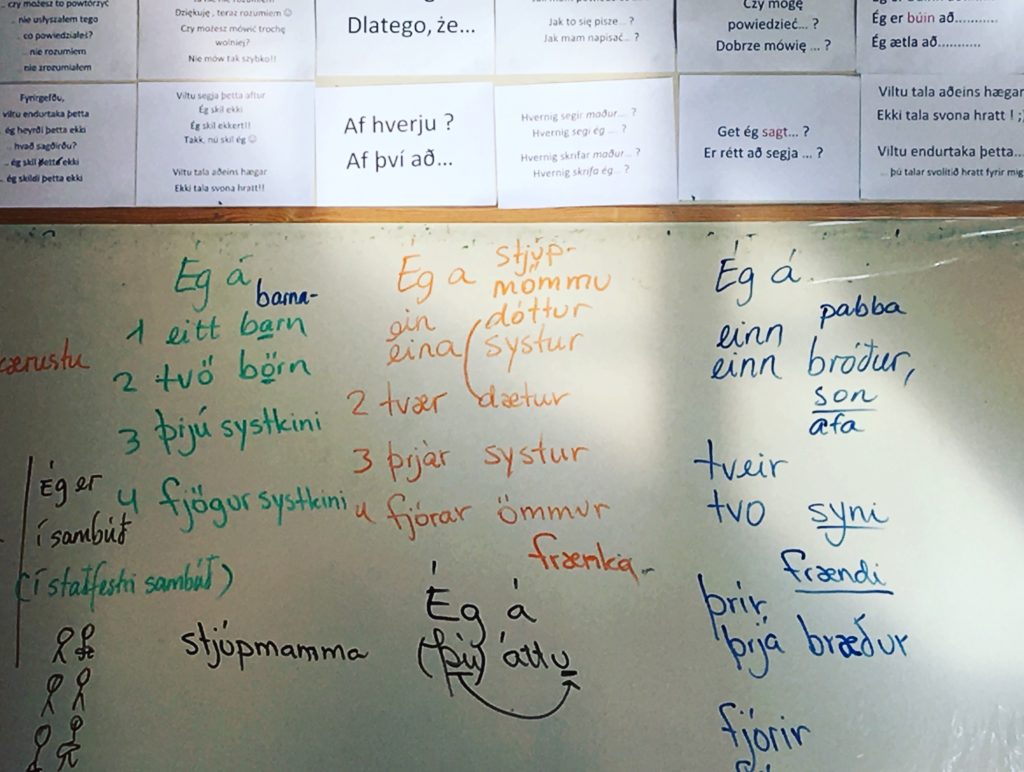 czy możesz to powtórzyć
nie usłyszałem tego
co powiedziałeś?
nie rozumiem
nie zrozumiałem
Dziękuję, teraz rozumiem ☺
Czy możesz mówić trochę
wolniej?
Nie mów tak szybko!!
Dlatego, że...
Jak to się pisze... ?
Jak mam napisać... ?
Czy mogę
powiedzieć... ?
Dobrze mówię ... ?
Ég er búin að...........
Ég ætla að...........
Fyrirgefðu,
viltu endurtaka þetta
ég heyrði þetta ekki
.. hvað sagðirðu?
.. ég skil þetta ekki
.. ég skildi þetta ekki
Viltu segja þetta aftur
Ég skil ekki
Ég skil ekkert!!
Takk, nú skil ég ☺
Viltu tala aðeins hægar
Ekki tala svona hratt!!
Af hverju ?
Af því að...
Hvernig segir maður... ?
Hvernig segi ég ... ?
Hvernig skrifar maður... ?
Hvernig skrifa ég... ?
Get ég sagt... ?
Er rétt að segja ... ?
Viltu tala aðeins hægar
Ekki tala svona hratt ! ;)
Viltu endurtaka þetta...
.. þú talar svolítið hratt fyrir mig
Ég á
barna-
1 eitt barn
2 tvö börn
3 þrjú systkini
4 fjögur systkini
ærustu
Ég er
í sambúð
(í staðfestri sambúð)
stjúpmamma
Ég a stjúp-
mömmu
ein dóttur
eina systur
2 tvær dætur
3 þrjár systur
4 fjórar ömmur
frænka
Ég á
(þú) áttu
Ég á
pabba
einn
einn bróður,
son
afa
tveir
tvo syni
frændi
þrír
þrjá bræður
fjórir